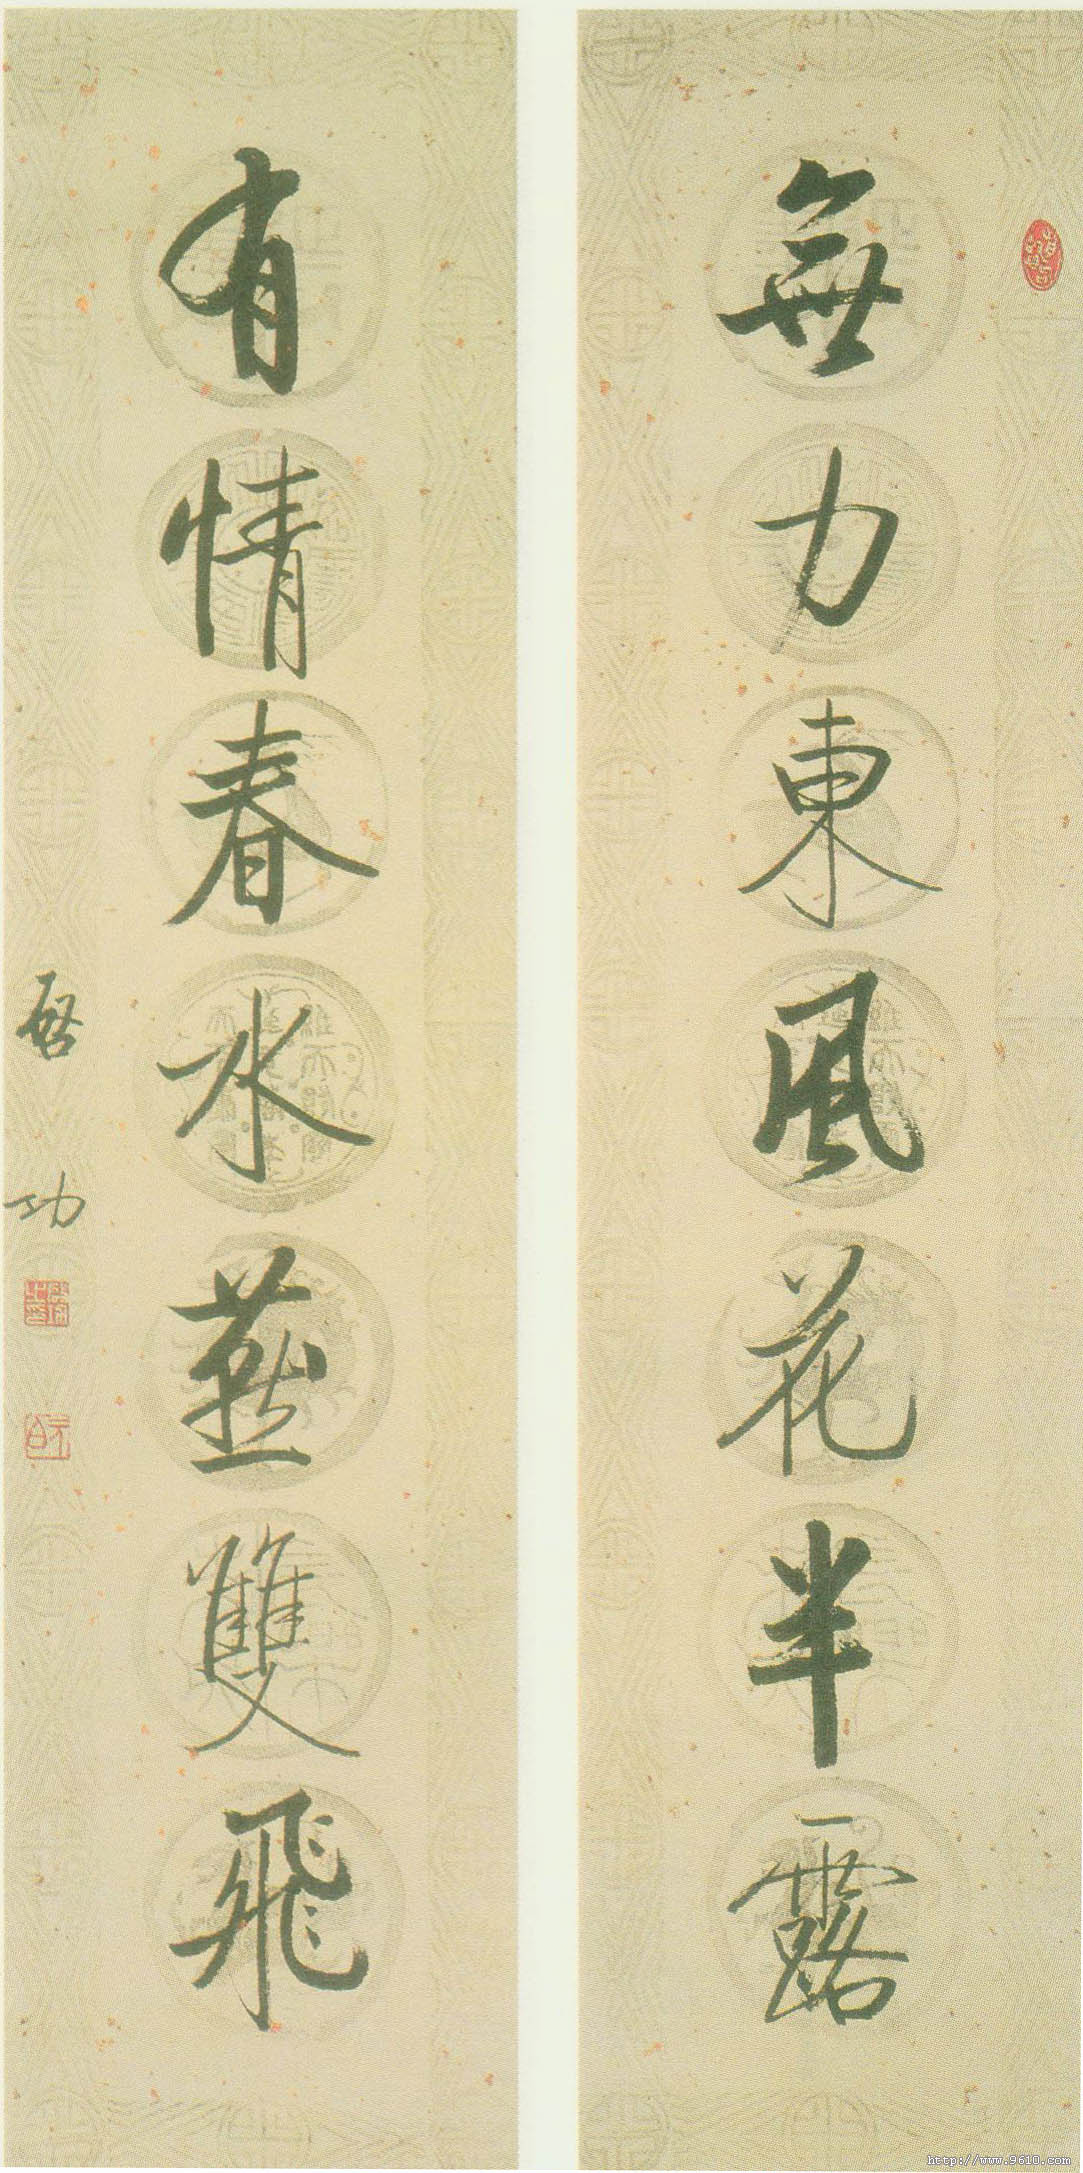 無力東風花半露
有情春水燕雙飛
啓功
http://www.9610.com